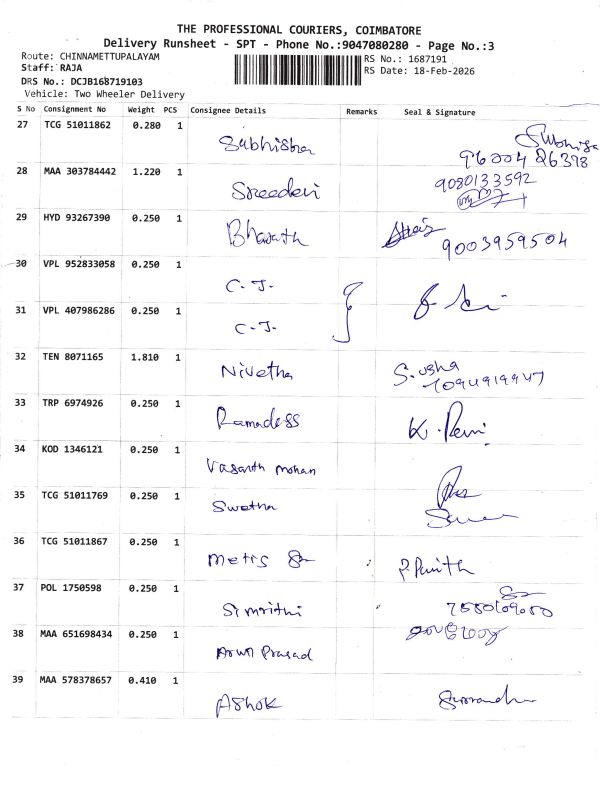 THE PROFESSIONAL COURIERS, COIMBATORE
Delivery Runsheet - SPT - Phone No.:9047080280 - Page No.:3
Route: CHINNAMETTUPALAYAM
RS No.: 1687191
Staff: RAJA
RS Date: 18-Feb-2026
DRS No.: DCJB168719103
Vehicle: Two Wheeler Delivery
S No Consignment No Weight PCS Consignee Details Remarks Seal & Signature
27 TCG 51011862 0.280 1
28 MAA 303784442 1.220 1 Sreedevi
9080133592
29 HYD 93267390 0.250 1 Bharath
9003959504
30 VPL 952833058 0.250 1 C.J.
31 VPL 407986286 0.250 1 C.J.
32 TEN 8071165 1.810 1 Nivetha S. Usha
33 TRP 6974926 0.250 1 Ramadess
34 KOD 1346121 0.250 1 Vasanth mohan
35 TCG 51011769 0.250 1 Swetha
36 TCG 51011867 0.250 1
37 POL 1750598 0.250 1 Simrithi
38 MAA 651698434 0.250 1 Arun Prasad
39 MAA 578378657 0.410 1 Ashok